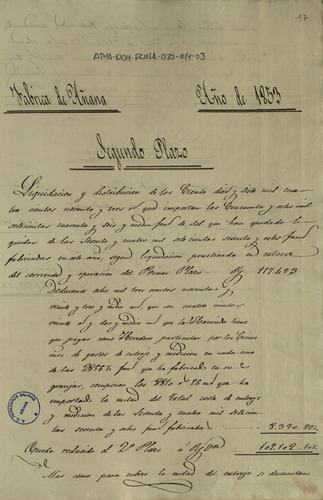 17
ATHA-DAH-FCHIA-070-014-03
Fabrica de Añana Año de 1853
Segundo Plazo
Liquidacion y distribucion de los Ciento diez y siete mil cua
tro cientos noventa y tres r.s que importan las Cincuenta y ocho mil
setecientas cuarenta y seis y media fan.s de sal que han quedado li
quidas de las Sesenta y cuatro mil seiscientas sesenta y ocho fan.s
fabricadas en este año, segun liquidacion practicada en
del corriente y operacion del Primer Plazo 117.493
Deducense ocho mil tres cientos noventa r.s
veinte y tres y medio mrs. que son cuatro cientos
veinte r.s y dos y medio mrs que la Hacienda tiene
que pagar como Heredero particular por los
de gastos de entroje y medicion en cada una
de las fan.s que ha fabricado en sus
granjas, componen los 8810 r.s 26 mrs que ha
importado la mitad del total coste de entroje
y medicion de las Sesenta y cuatro mil seiscien
tas sesenta y ocho fan.s fabricadas 8.390..
Queda reducido el 2.º Plazo á 109.102
Mas como para cubrir la mitad del entroje se descuentan